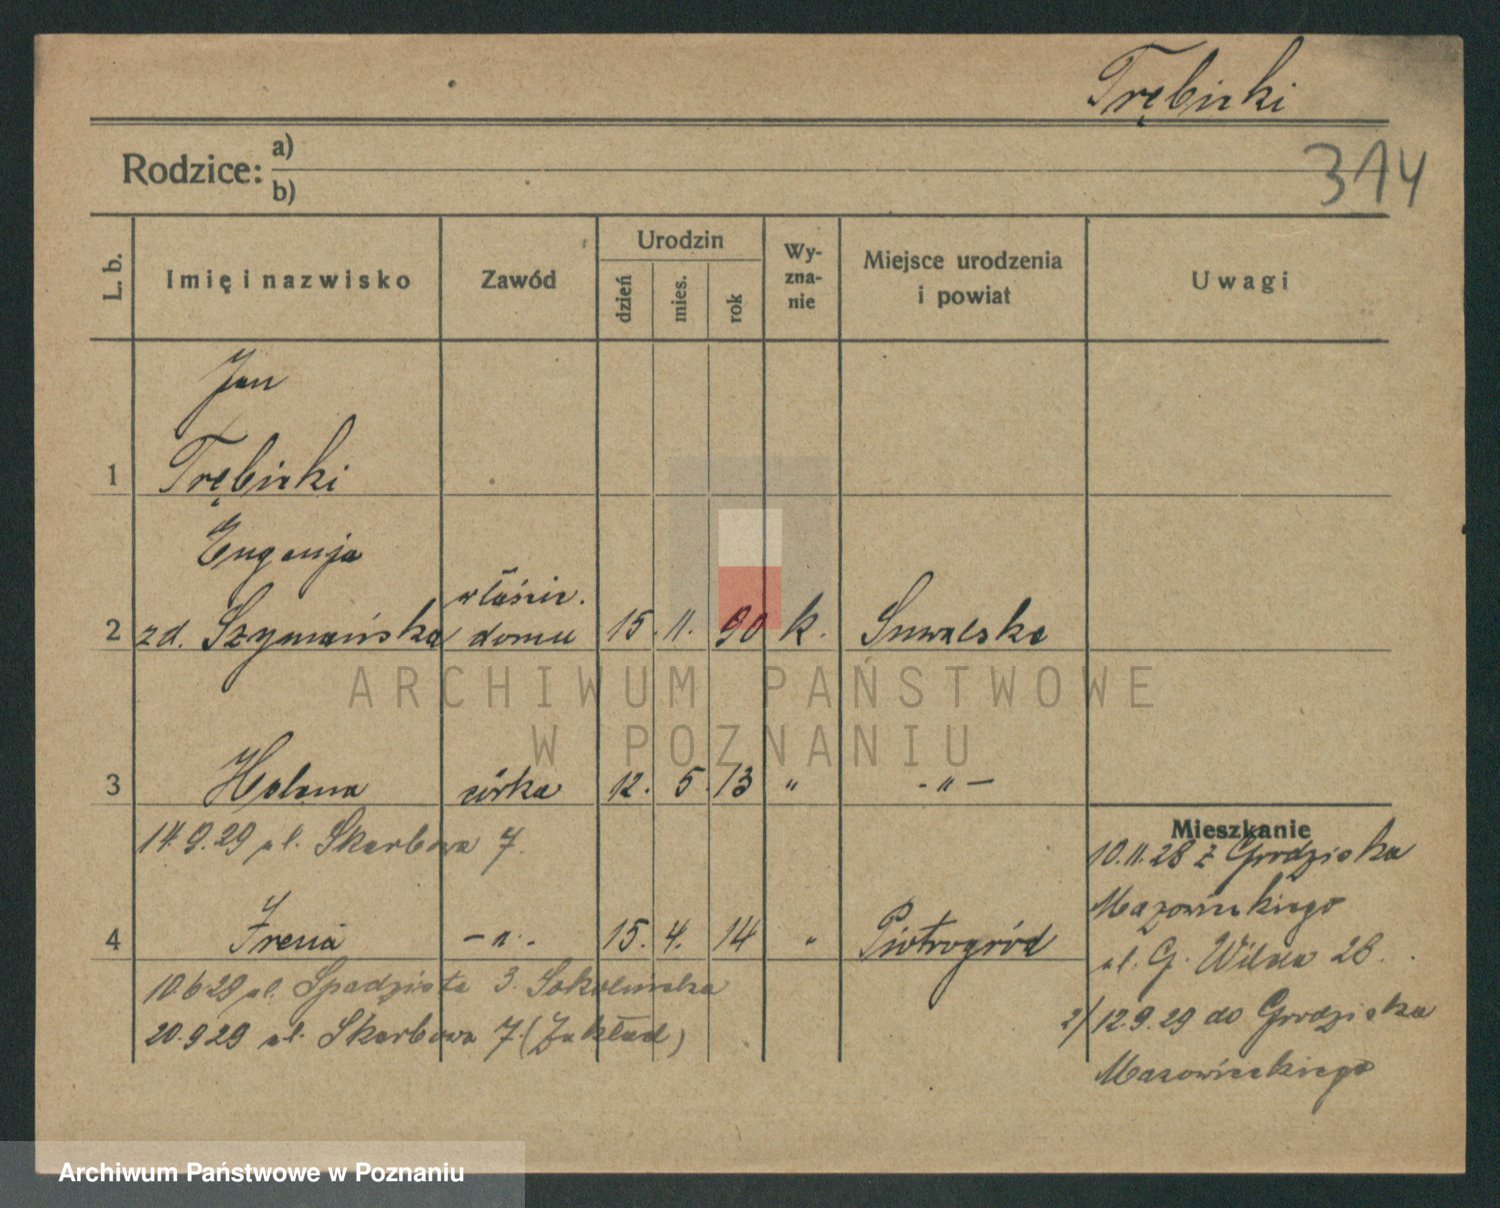 Trębicki
314
Rodzice: a)
b)
L. b.
Imię i nazwisko
Zawód
Urodzin
dzień
mies.
rok
Wy-
zna-
nie
Miejsce urodzenia
i powiat
Uwagi
Jan
1 Trębicki
Eugenja
właścic.
2 zd. Szymańska domu 15. 11. 90 k. Suwalska
ARCHIWUM PAŃSTWOWE
W POZNANIU
3 Helena córka 12. 5. 13 " - " -
14.9.29 ul. Skarbowa 7.
4 Irena - " - 15. 4. 14 " Piotrogród
10.6.29 ul. Spadzista 3. Sokolnicka
20.9.29 ul. Skarbowa 7. (Zakład)
Mieszkanie
10.11.28 z Grodziska
Mazowieckiego
ul. G. Wilda 28.
2/ 12.9.29 do Grodziska
Mazowieckiego
Archiwum Państwowe w Poznaniu